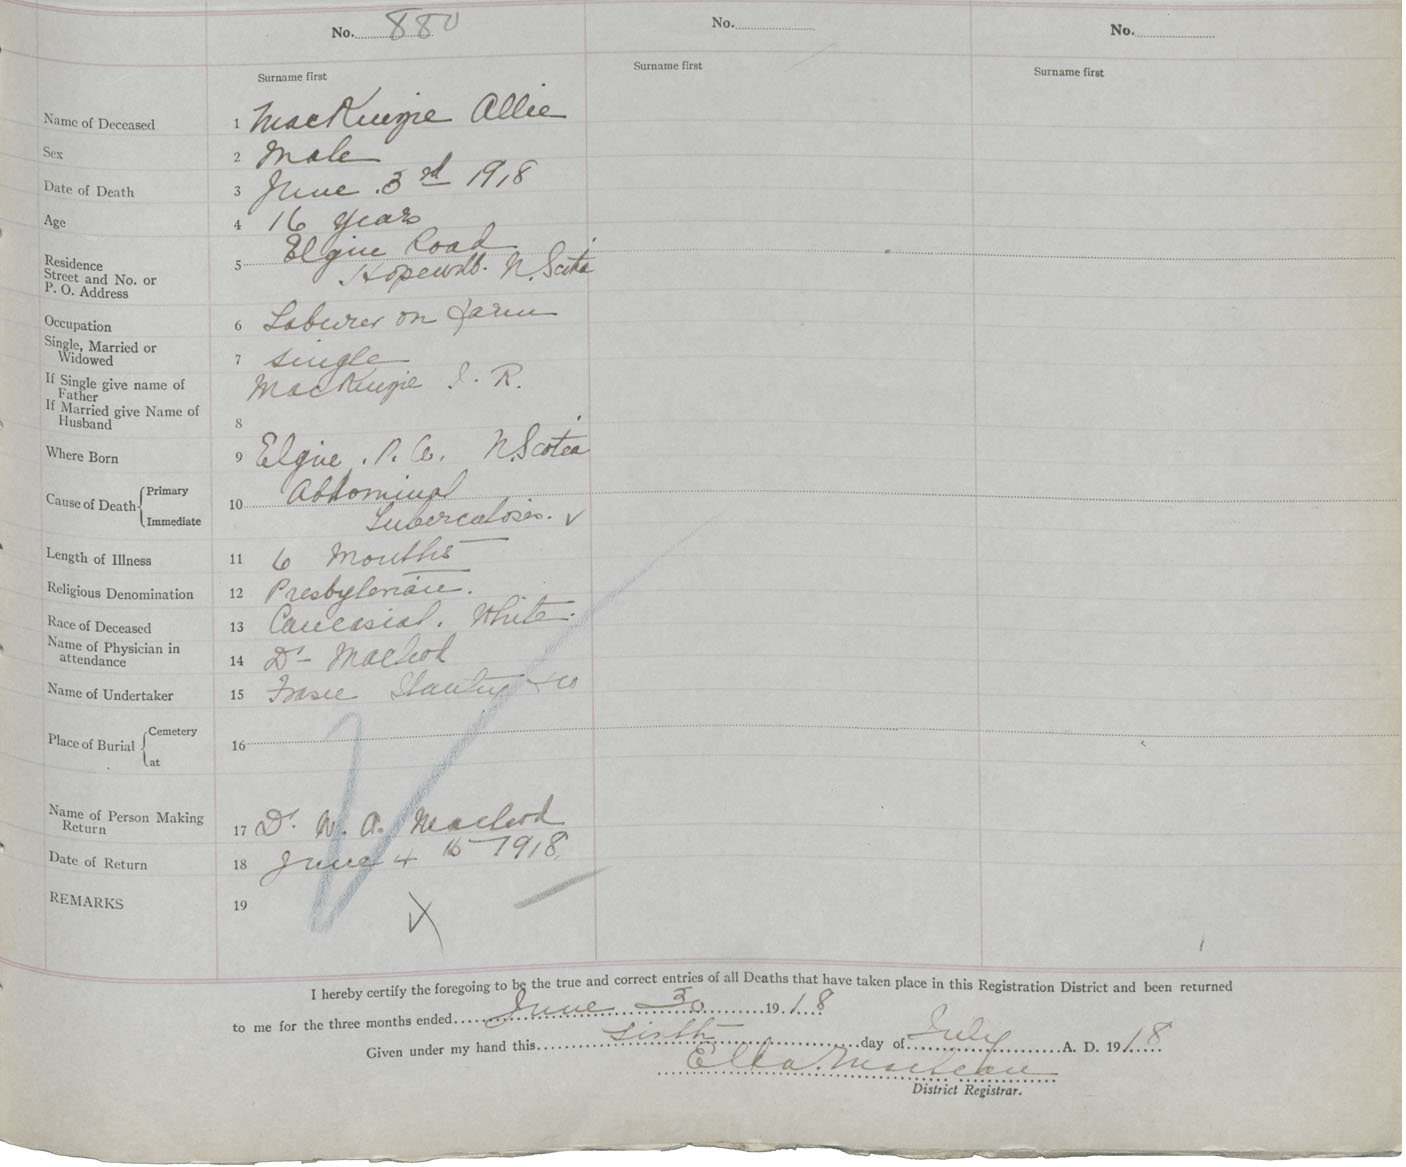 No. 880
No.
No.
Surname first
Surname first
Surname first
Name of Deceased 1 MacKenzie Allie
Sex 2 Male
Date of Death 3 June 3rd 1918
Age 4 16 years
Residence
Street and No. or
P. O. Address
5 Elgin Road
Hopewell. N. Scotia
Occupation 6 Laburer on farm
Single, Married or
Widowed
7 single
If Single give name of
Father
MacKenzie J. R.
If Married give Name of
Husband
8
Where Born 9 Elgin, P. Co. N. Scotia
Cause of Death Primary
Immediate
10 Abdominal
Tuberculosis.
Length of Illness 11 6 Months
Religious Denomination 12 Presbyterian.
Race of Deceased 13 Caucasial. White.
Name of Physician in
attendance
14 Dr MacLeod
Name of Undertaker 15 & Co
Place of Burial Cemetery
at
16
Name of Person Making
Return
17 Dr. W. A. MacLeod
Date of Return 18 June 4th 1918
REMARKS 19
I hereby certify the foregoing to be the true and correct entries of all Deaths that have taken place in this Registration District and been returned
to me for the three months ended June 30 1918
Given under my hand this sixth day of July A. D. 1918
Ella MacLean
District Registrar.